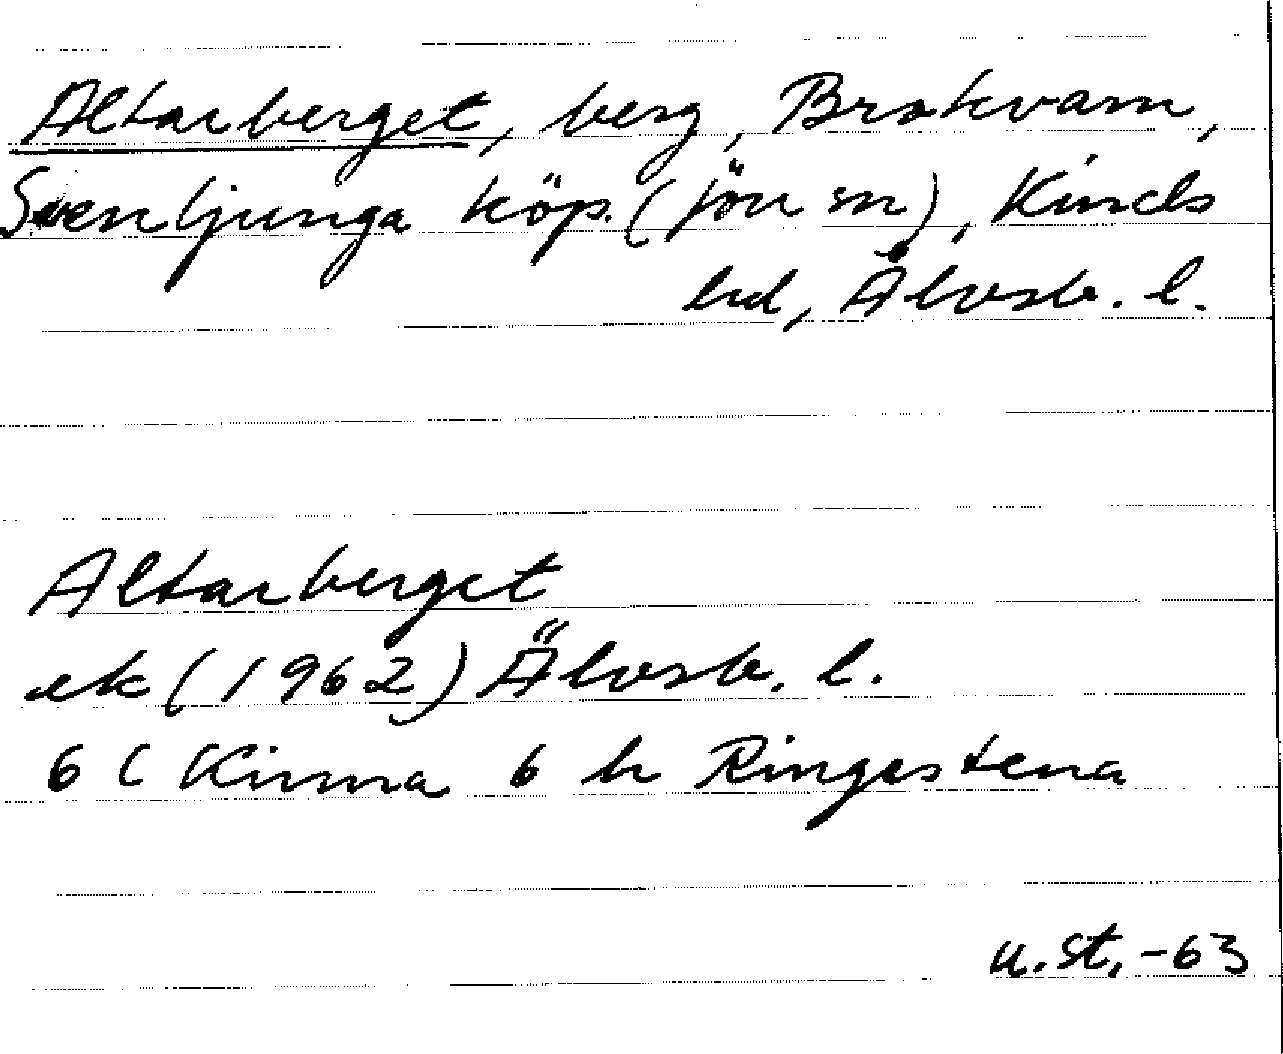 Altarberget, berg, Brokvarn,
Svenljunga köp. (förs m), Kinds
hd, Älvsb. l.
Altarberget
ek (1962) Älvsb. l.
6 C Kinna 6 h Ringestena
u.st. -63